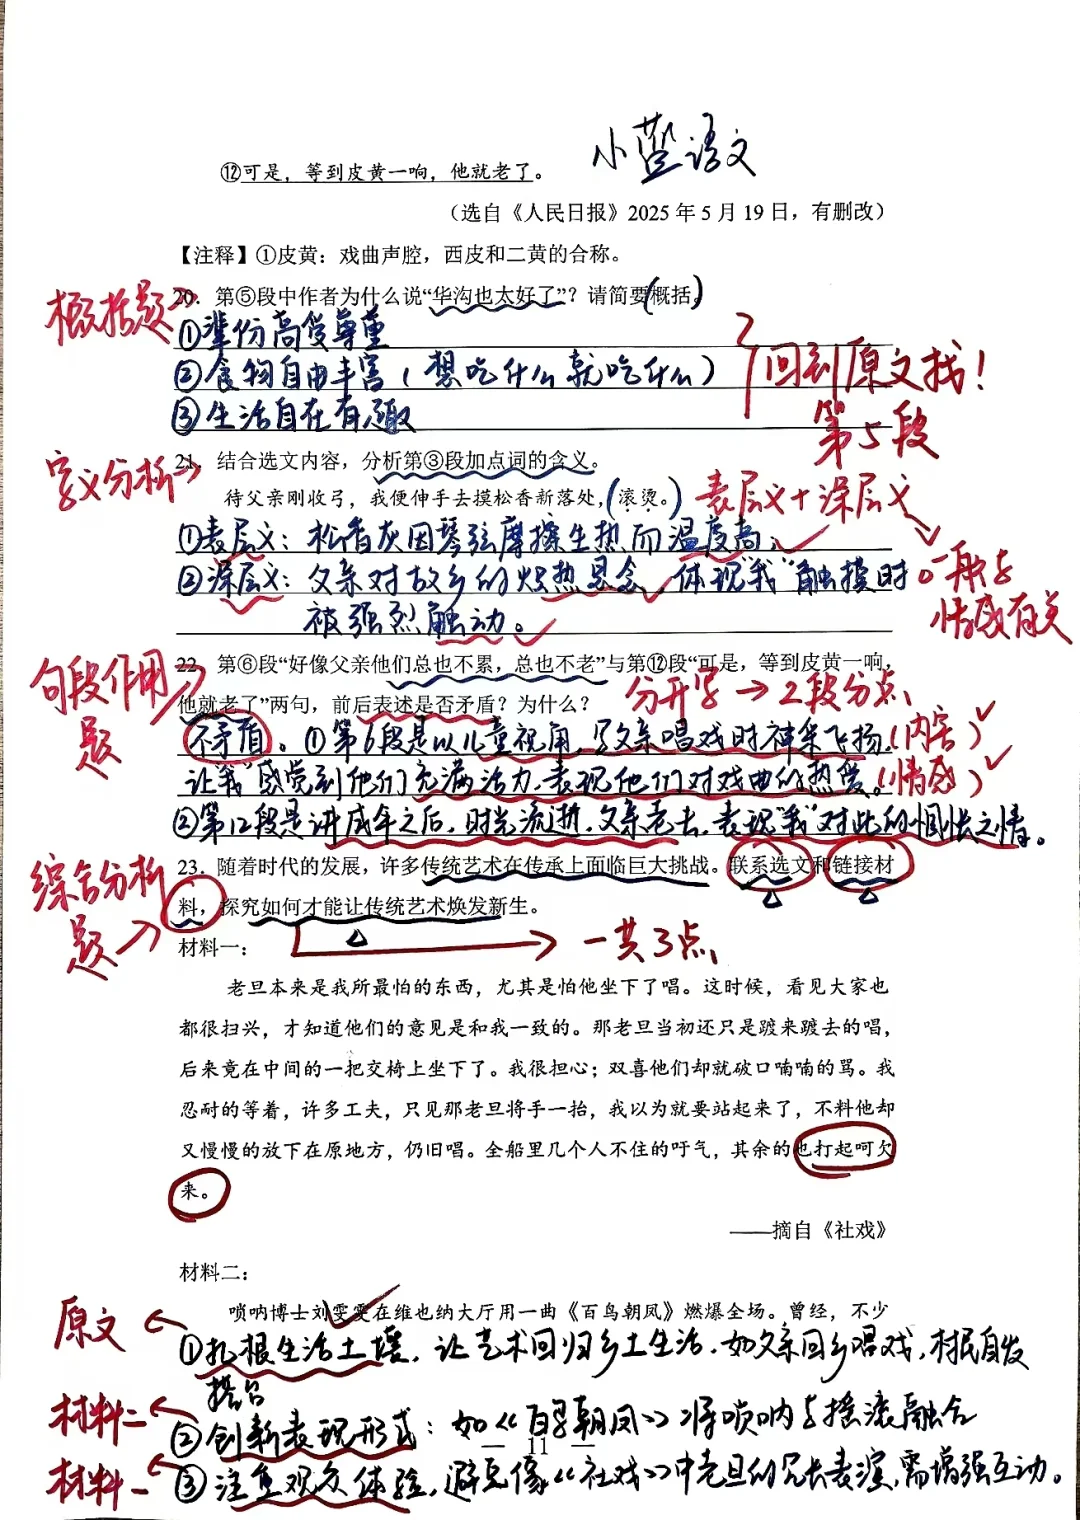 小蓝语文
⑫可是，等到皮黄一响，他就老了。
（选自《人民日报》2025年5月19日，有删改）
【注释】①皮黄：戏曲声腔，西皮和二黄的合称。
概括题
20．第⑤段中作者为什么说“华沟也太好了”？请简要概括。
①辈份高受尊重
②食物自由丰富（想吃什么就吃什么）
③生活自在有趣
回到原文找！
第5段
字义分析
21．结合选文内容，分析第③段加点词的含义。
待父亲刚收弓，我便伸手去摸松香新落处，（滚烫。）
表层义+深层义
①表层义：松香灰因琴弦摩擦生热而温度高；
②深层义：父亲对故乡的炽热思念，体现“我”触摸时
被强烈触动。
一般与
情感有关
句段作用
题
22．第⑥段“好像父亲他们总也不累，总也不老”与第⑫段“可是，等到皮黄一响，
他就老了”两句，前后表述是否矛盾？为什么？
分开写→2段分点
不矛盾。①第6段是以儿童视角，写父亲唱戏时神采飞扬，（内容）
让“我”感觉到他们充满活力，表现他们对戏曲的热爱。（情感）
②第12段是讲成年之后，时光流逝，父亲老去，表现“我”对此的惆怅之情。
综合分析
题
23．随着时代的发展，许多传统艺术在传承上面临巨大挑战。联系选文和链接材
料，探究如何才能让传统艺术焕发新生。
一共3点
材料一：
老旦本来是我所最怕的东西，尤其是怕他坐下了唱。这时候，看见大家也
都很扫兴，才知道他们的意见是和我一致的。那老旦当初还只是踱来踱去的唱，
后来竟在中间的一把交椅上坐下了。我很担心；双喜他们却就破口喃喃的骂。我
忍耐的等着，许多工夫，只见那老旦将手一抬，我以为就要站起来了，不料他却
又慢慢的放下在原地方，仍旧唱。全船里几个人不住的吁气，其余的也打起呵欠
来。
——摘自《社戏》
材料二：
唢呐博士刘雯雯在维也纳大厅用一曲《百鸟朝凤》燃爆全场。曾经，不少
原文
①扎根生活土壤，让艺术回归乡土生活，如父亲回乡唱戏，村民自发
搭台
材料二
②创新表现形式：如《百鸟朝凤》将唢呐与摇滚融合
— 11 —
材料一
③注重观众体验，避免像《社戏》中老旦的冗长表演，需增强互动。